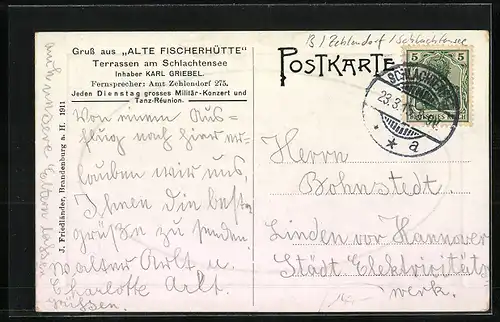 B/ Zehlendorf / Schlachtensee
Gruß aus „ALTE FISCHERHÜTTE"
Terrassen am Schlachtensee
Inhaber KARL GRIEBEL.
Fernsprecher: Amt Zehlendorf 275.
Jeden Dienstag grosses Militär-Konzert und
Tanz-Réunion.
POSTKARTE
5 5
DEUTSCHES REICH
SCHLACHTENSEE
23.3.
* a
Von einem Aus-
flug nach hier er-
lauben wir uns,
Ihnen die best
grüße zu senden.
Walter Arlt u.
Charlotte Arlt.
auch unsere Eltern lassen
grüssen.
J. Friedländer, Brandenburg a. H. 1911
Herrn
Bohnstedt.
Linden vor Hannover
Städt Elektricitäts
werk.